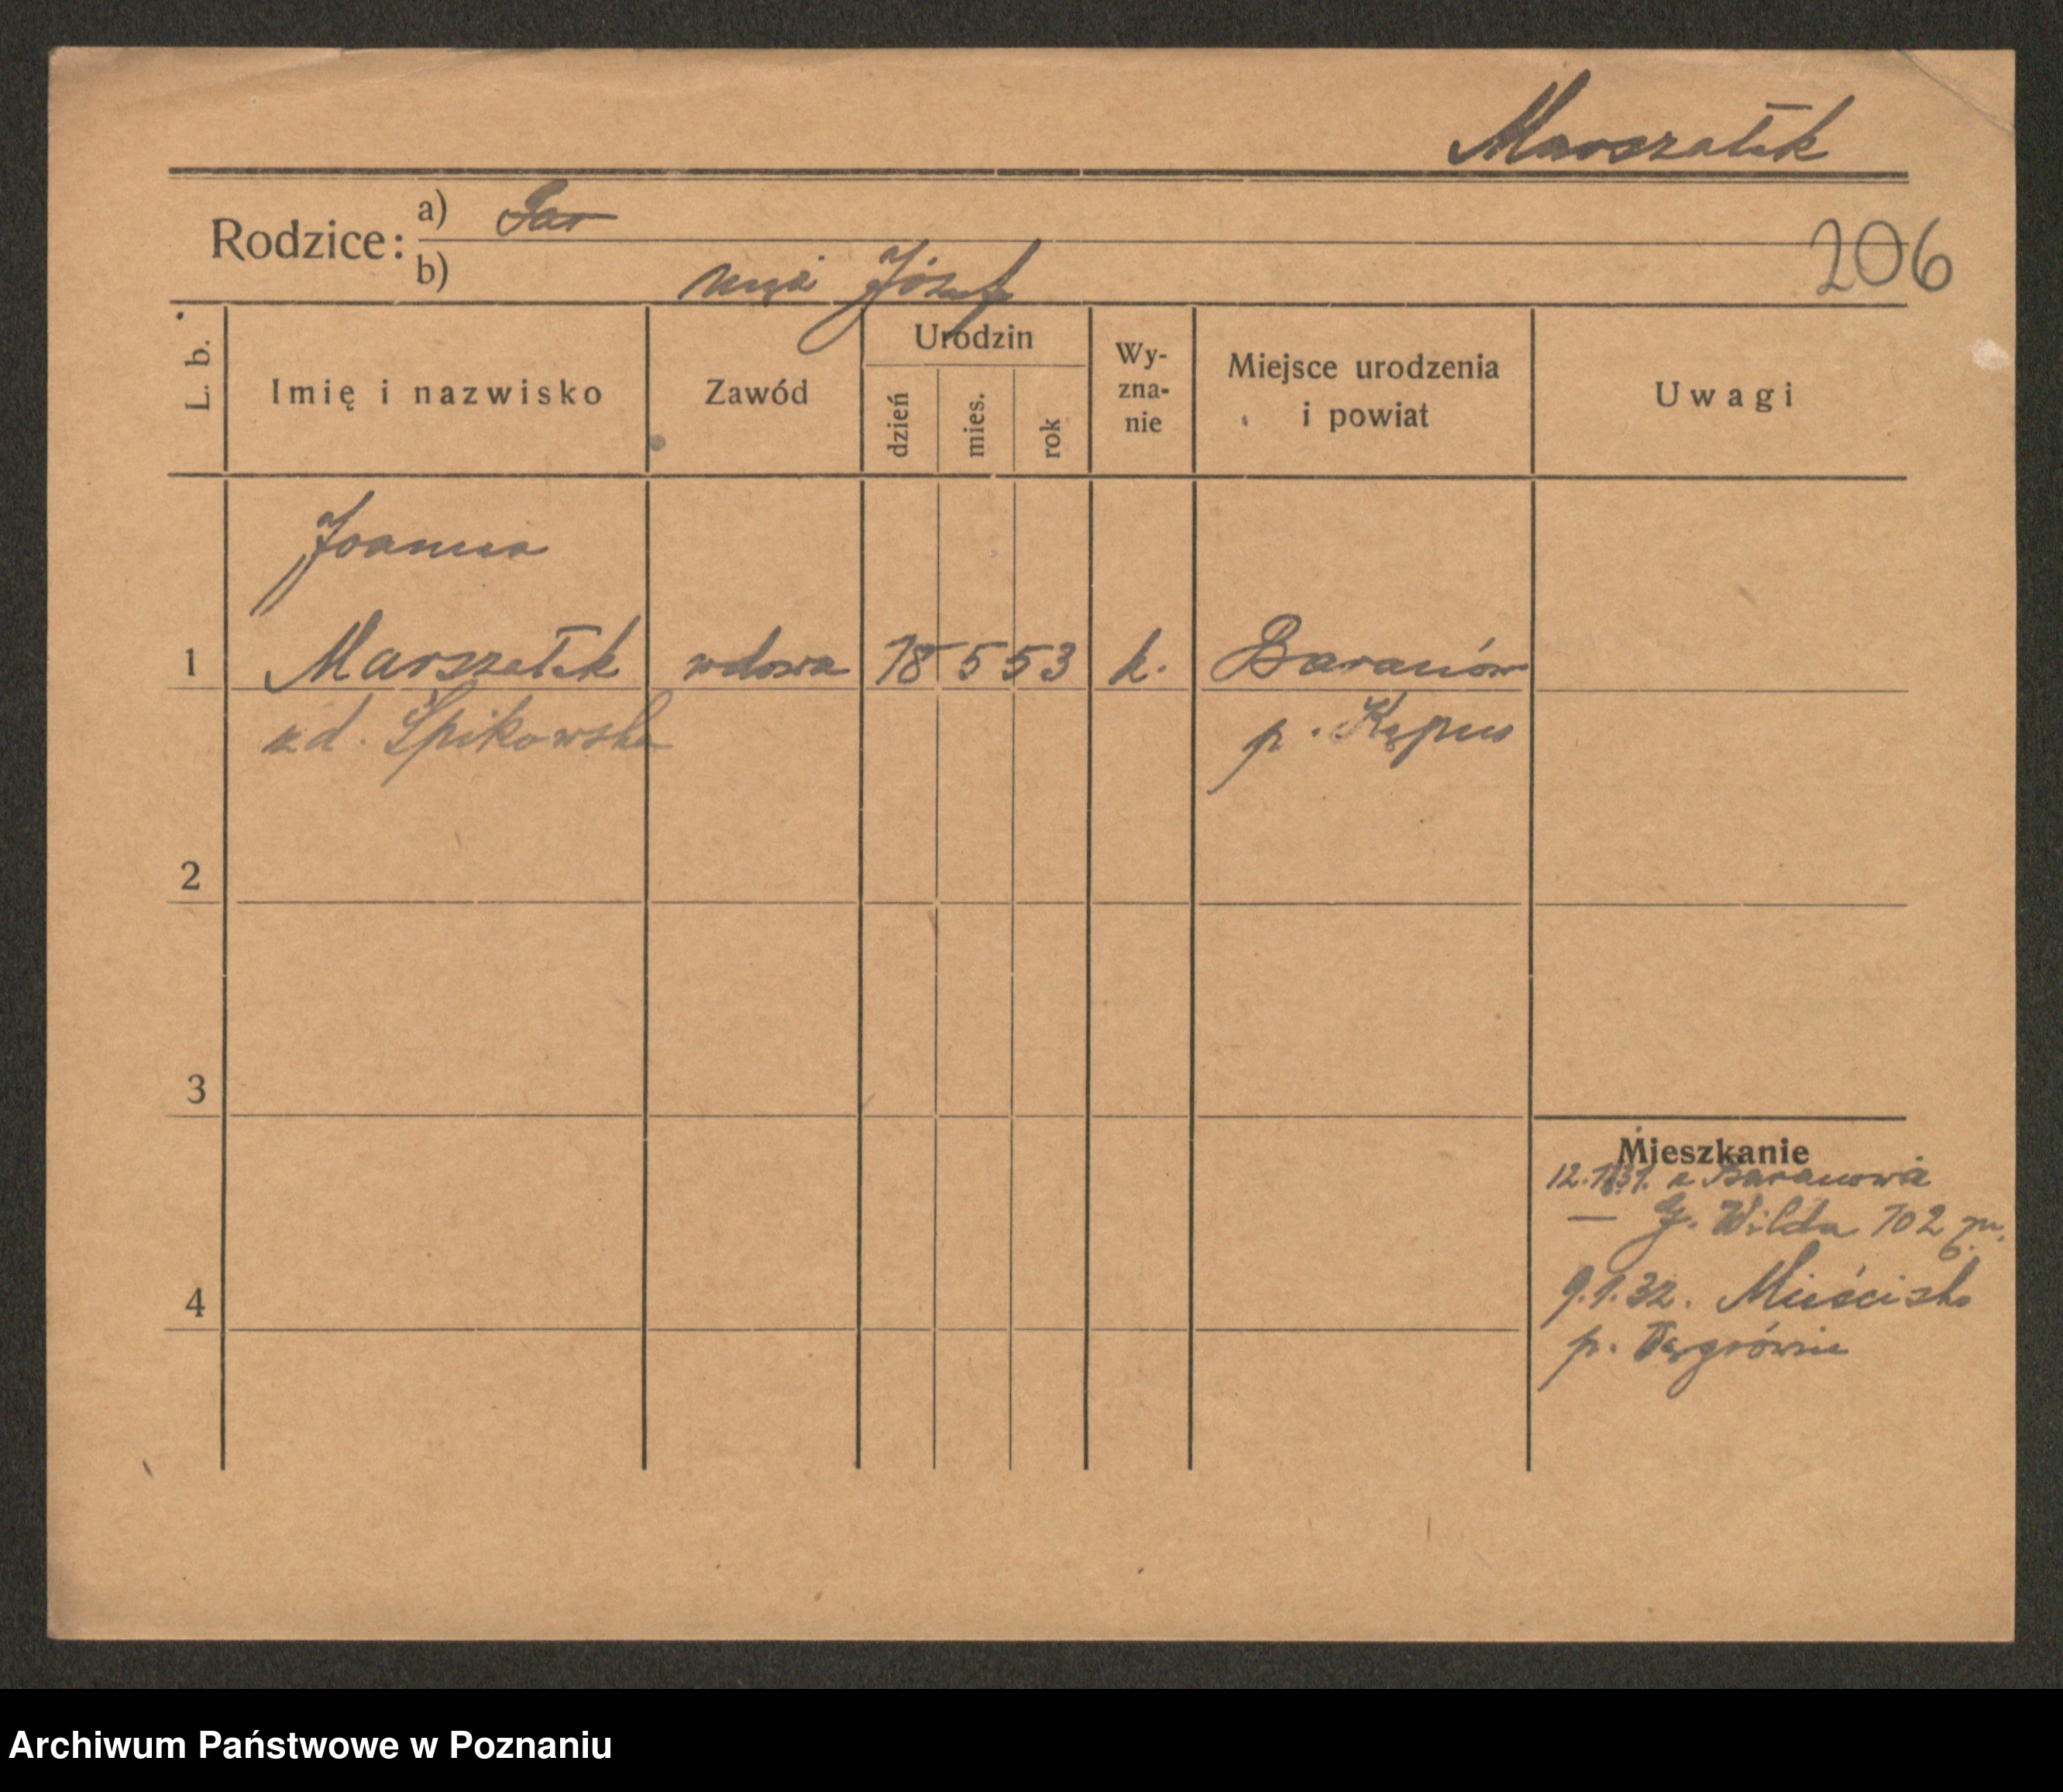 Marszałek
Rodzice: a)
b) mąż Józef
206
L. b.
Imię i nazwisko
Zawód
Urodzin
dzień
mies.
rok
Wy-
zna-
nie
Miejsce urodzenia
i powiat
Uwagi
Joanna
1 Marszałek wdowa 18 5 53 k. Baranów
zd. Spikowska p. Kępno
2
3
Mieszkanie
z Baranowa
G. Wilda 102
4
9.1.32. Mieścisko
p. Wągrówiec
Archiwum Państwowe w Poznaniu